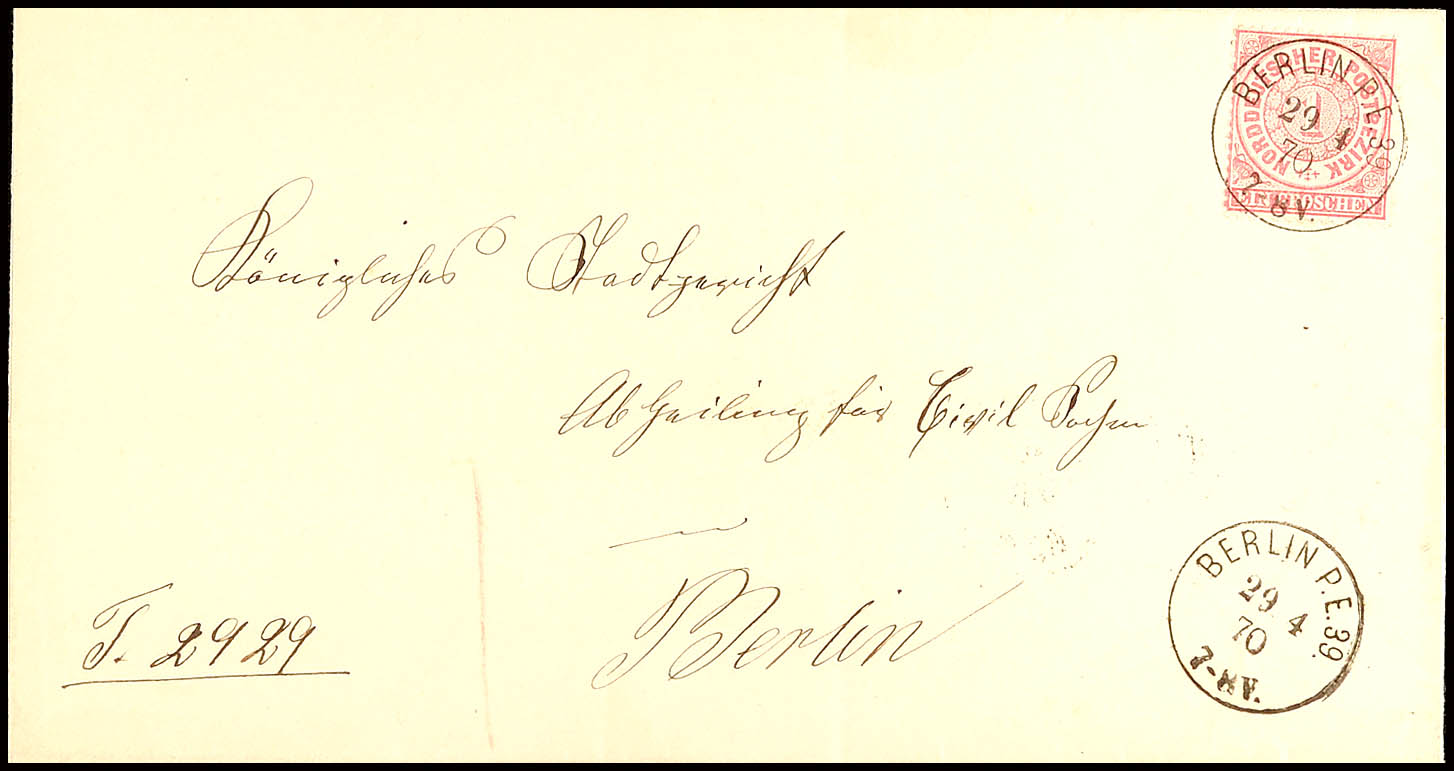 NORDDEUTSCHER POSTBEZIRK
1
EIN GROSCHEN
BERLIN P.E. 39
29 4
70
7-8V.
Königliches Stadtgericht
Abtheilung für Civil Sachen
Berlin
T. 2929
BERLIN P.E. 39.
29 4
70
7-8V.